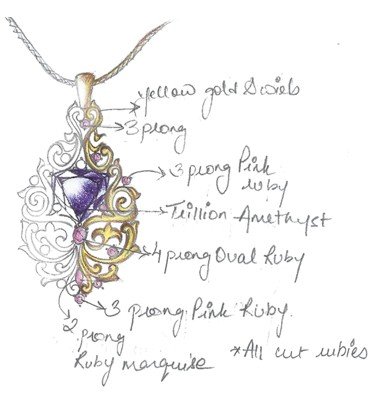 yellow gold Swirls
3 prong
3 prong Pink
ruby
Trillion Amethyst
4 prong Oval Ruby
3 prong Pink Ruby.
2
prong
Ruby marquise
*All cut rubies